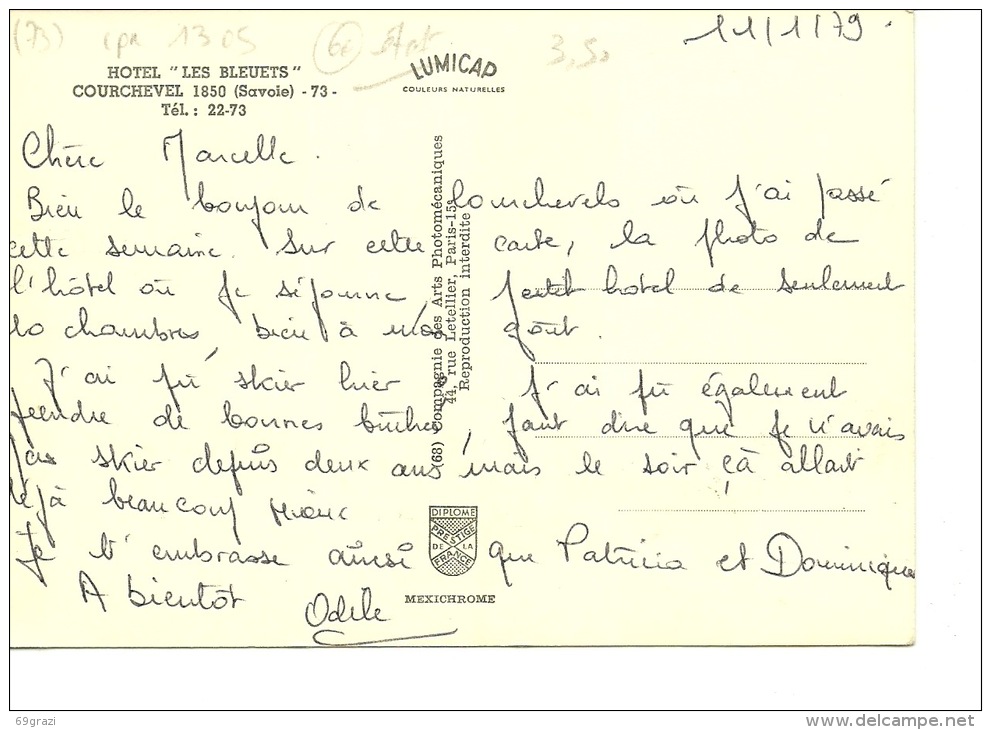 (73) cpn 1305 3,50
11/1/79.
HOTEL "LES BLEUETS"
COURCHEVEL 1850 (Savoie) - 73 -
Tél.: 22-73
LUMICAP
COULEURS NATURELLES
Chère Marcelle.
Bien le bonjour de Courchevels où j'ai passé
cette semaine. Sur cette carte, la photo de
l'hôtel où je séjourne, petit hotel de seulement
10 chambres, bien à mon goût.
J'ai pû skier hier. J'ai pû également
prendre de bonnes bûches, faut dire que je n'avais
pas skier depuis deux ans mais le soir çà allait
déjà beaucoup mieux
Je t'embrasse ainsi que Patricia et Dominique
A bientôt
Odile
(68) Compagnie des Arts Photomécaniques
44, rue Letellier, Paris-15e
Reproduction interdite
DIPLOME
PRESTIGE
DE LA
FRANCE
MEXICHROME
69grazi
www.delcampe.net